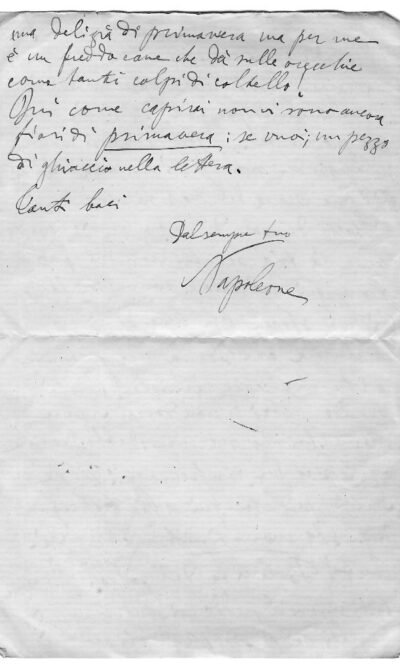 una delizia di primavera ma per me
è un freddo cane che dà sulle orecchie
come tanti colpi di coltello.
Qui come capirai non vi sono ancora
fiori di primavera; se vuoi, un pezzo
di ghiaccio nella lettera.
Tanti baci
Dal sempre tuo
Napoleone